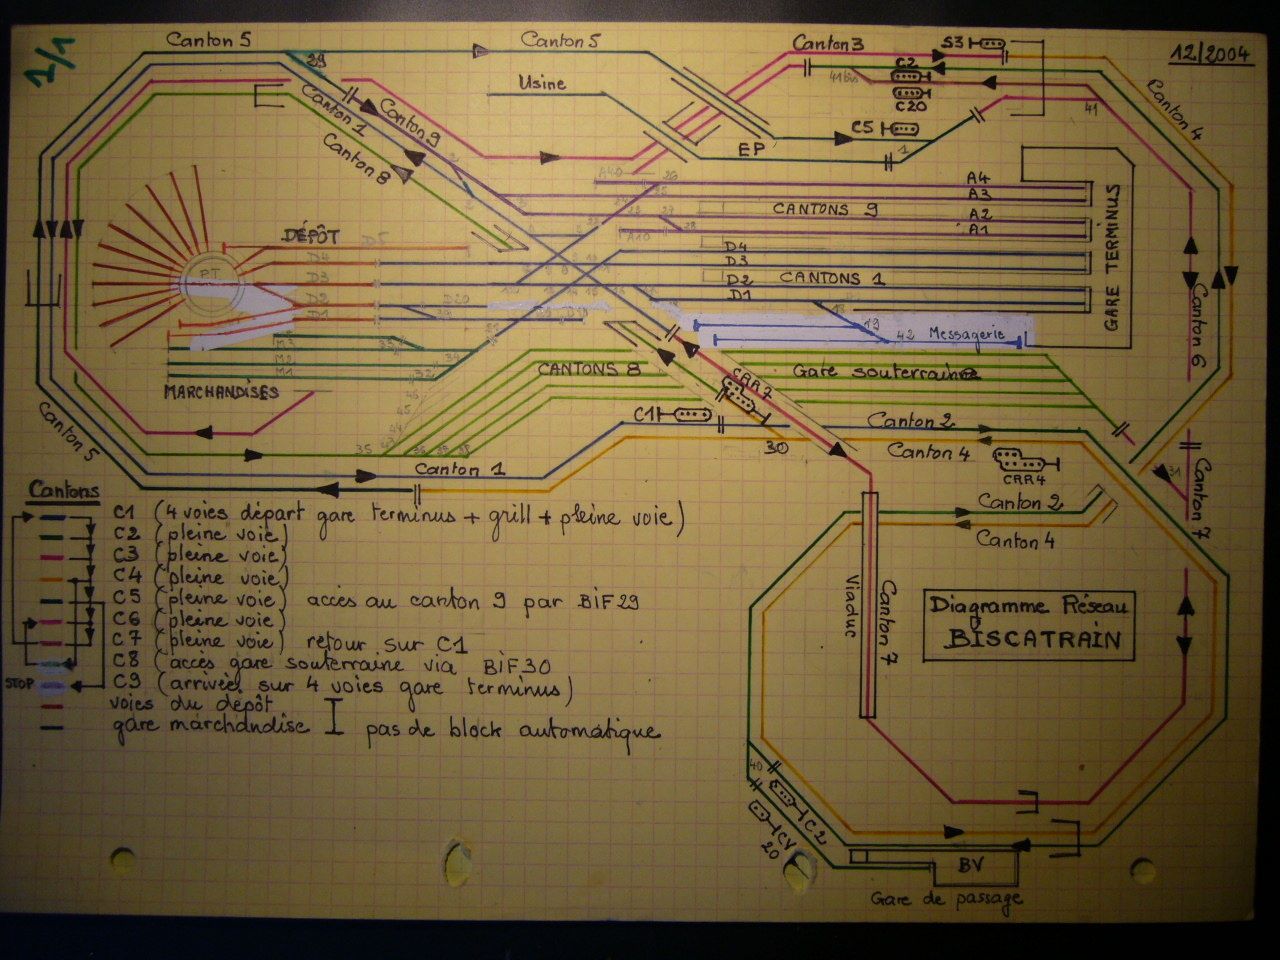 1/1
Canton 5
Canton 5
Canton 3
S3
12/2004
29
C2
41bis
C20
41
Canton 4
Usine
Canton 1
Canton 9
Canton 8
C5
EP
1
A4
A3
CANTONS 9
A2
A1
D4
D3
CANTONS 1
D2
D1
GARE TERMINUS
DÉPÔT
D5
D4
P.T.
D3
D2
D20
D1
Canton 6
19
42
Messagerie
M3
M2
M1
MARCHANDISES
CANTONS 8
CRR7
Gare souterraine
C1
Canton 2
Canton 5
35
30
Canton 4
Canton 1
CRR4
31
Canton 7
Canton 2
Canton 4
Cantons
C1 (4 voies départ gare terminus + grill + pleine voie)
C2 (pleine voie)
C3 (pleine voie)
C4 (pleine voie)
C5 (pleine voie) accès au canton 9 par BIF29
C6 (pleine voie)
C7 (pleine voie) retour sur C1
C8 (accès gare souterraine via BIF30
STOP
C9 (arrivée sur 4 voies gare terminus)
voies du dépôt
gare marchandise I pas de block automatique
Viaduc
Canton 7
Diagramme Réseau
BISCATRAIN
40
C2
CV
20
BV
Gare de passage